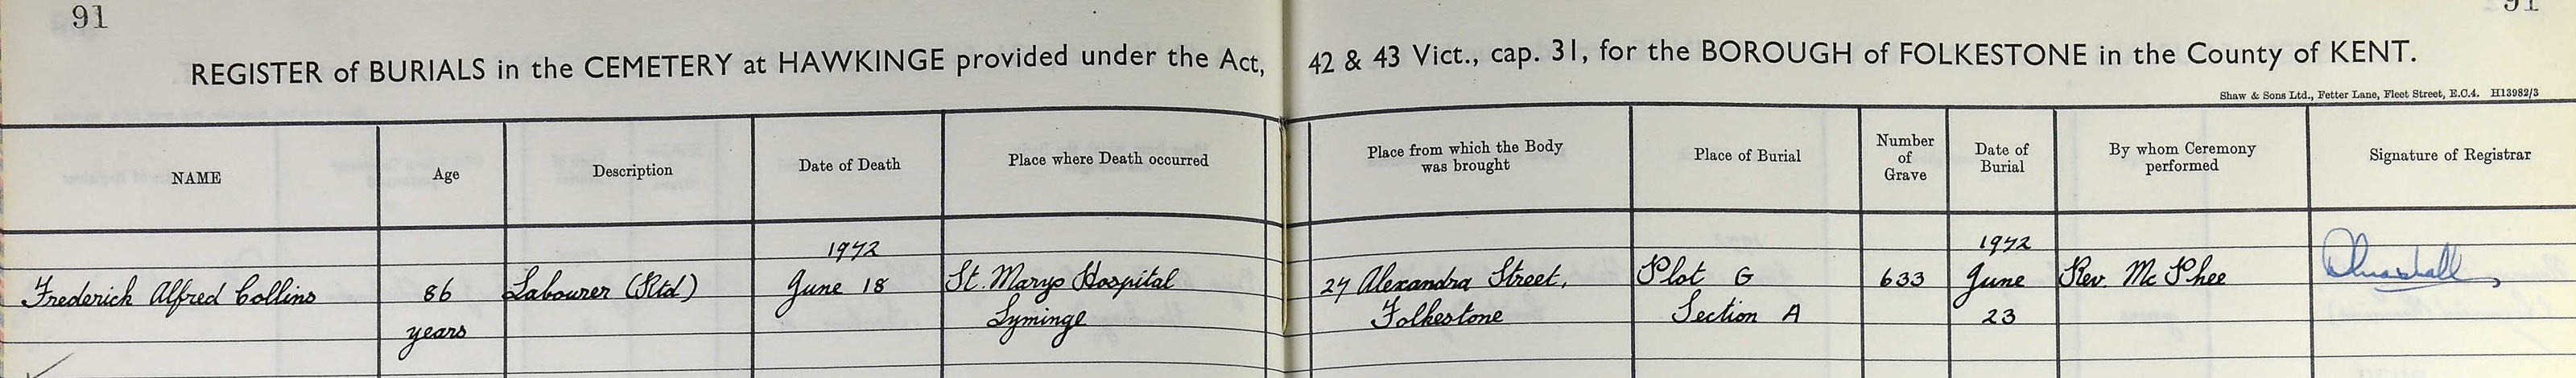 91
91
REGISTER of BURIALS in the CEMETERY at HAWKINGE provided under the Act, 42 & 43 Vict., cap. 31, for the BOROUGH of FOLKESTONE in the County of KENT.
Shaw & Sons Ltd., Fetter Lane, Fleet Street, E.C.4. H13982/3
NAME
Age
Description
Date of Death
Place where Death occurred
Place from which the Body
was brought
Place of Burial
Number
of
Grave
Date of
Burial
By whom Ceremony
performed
Signature of Registrar
Frederick Alfred Collins
86
years
Labourer (Rtd)
1972
June 18
St. Marys Hospital
Lyminge
27 Alexandra Street,
Folkestone
Plot G
Section A
633
1972
June
23
Rev. Mc Phee